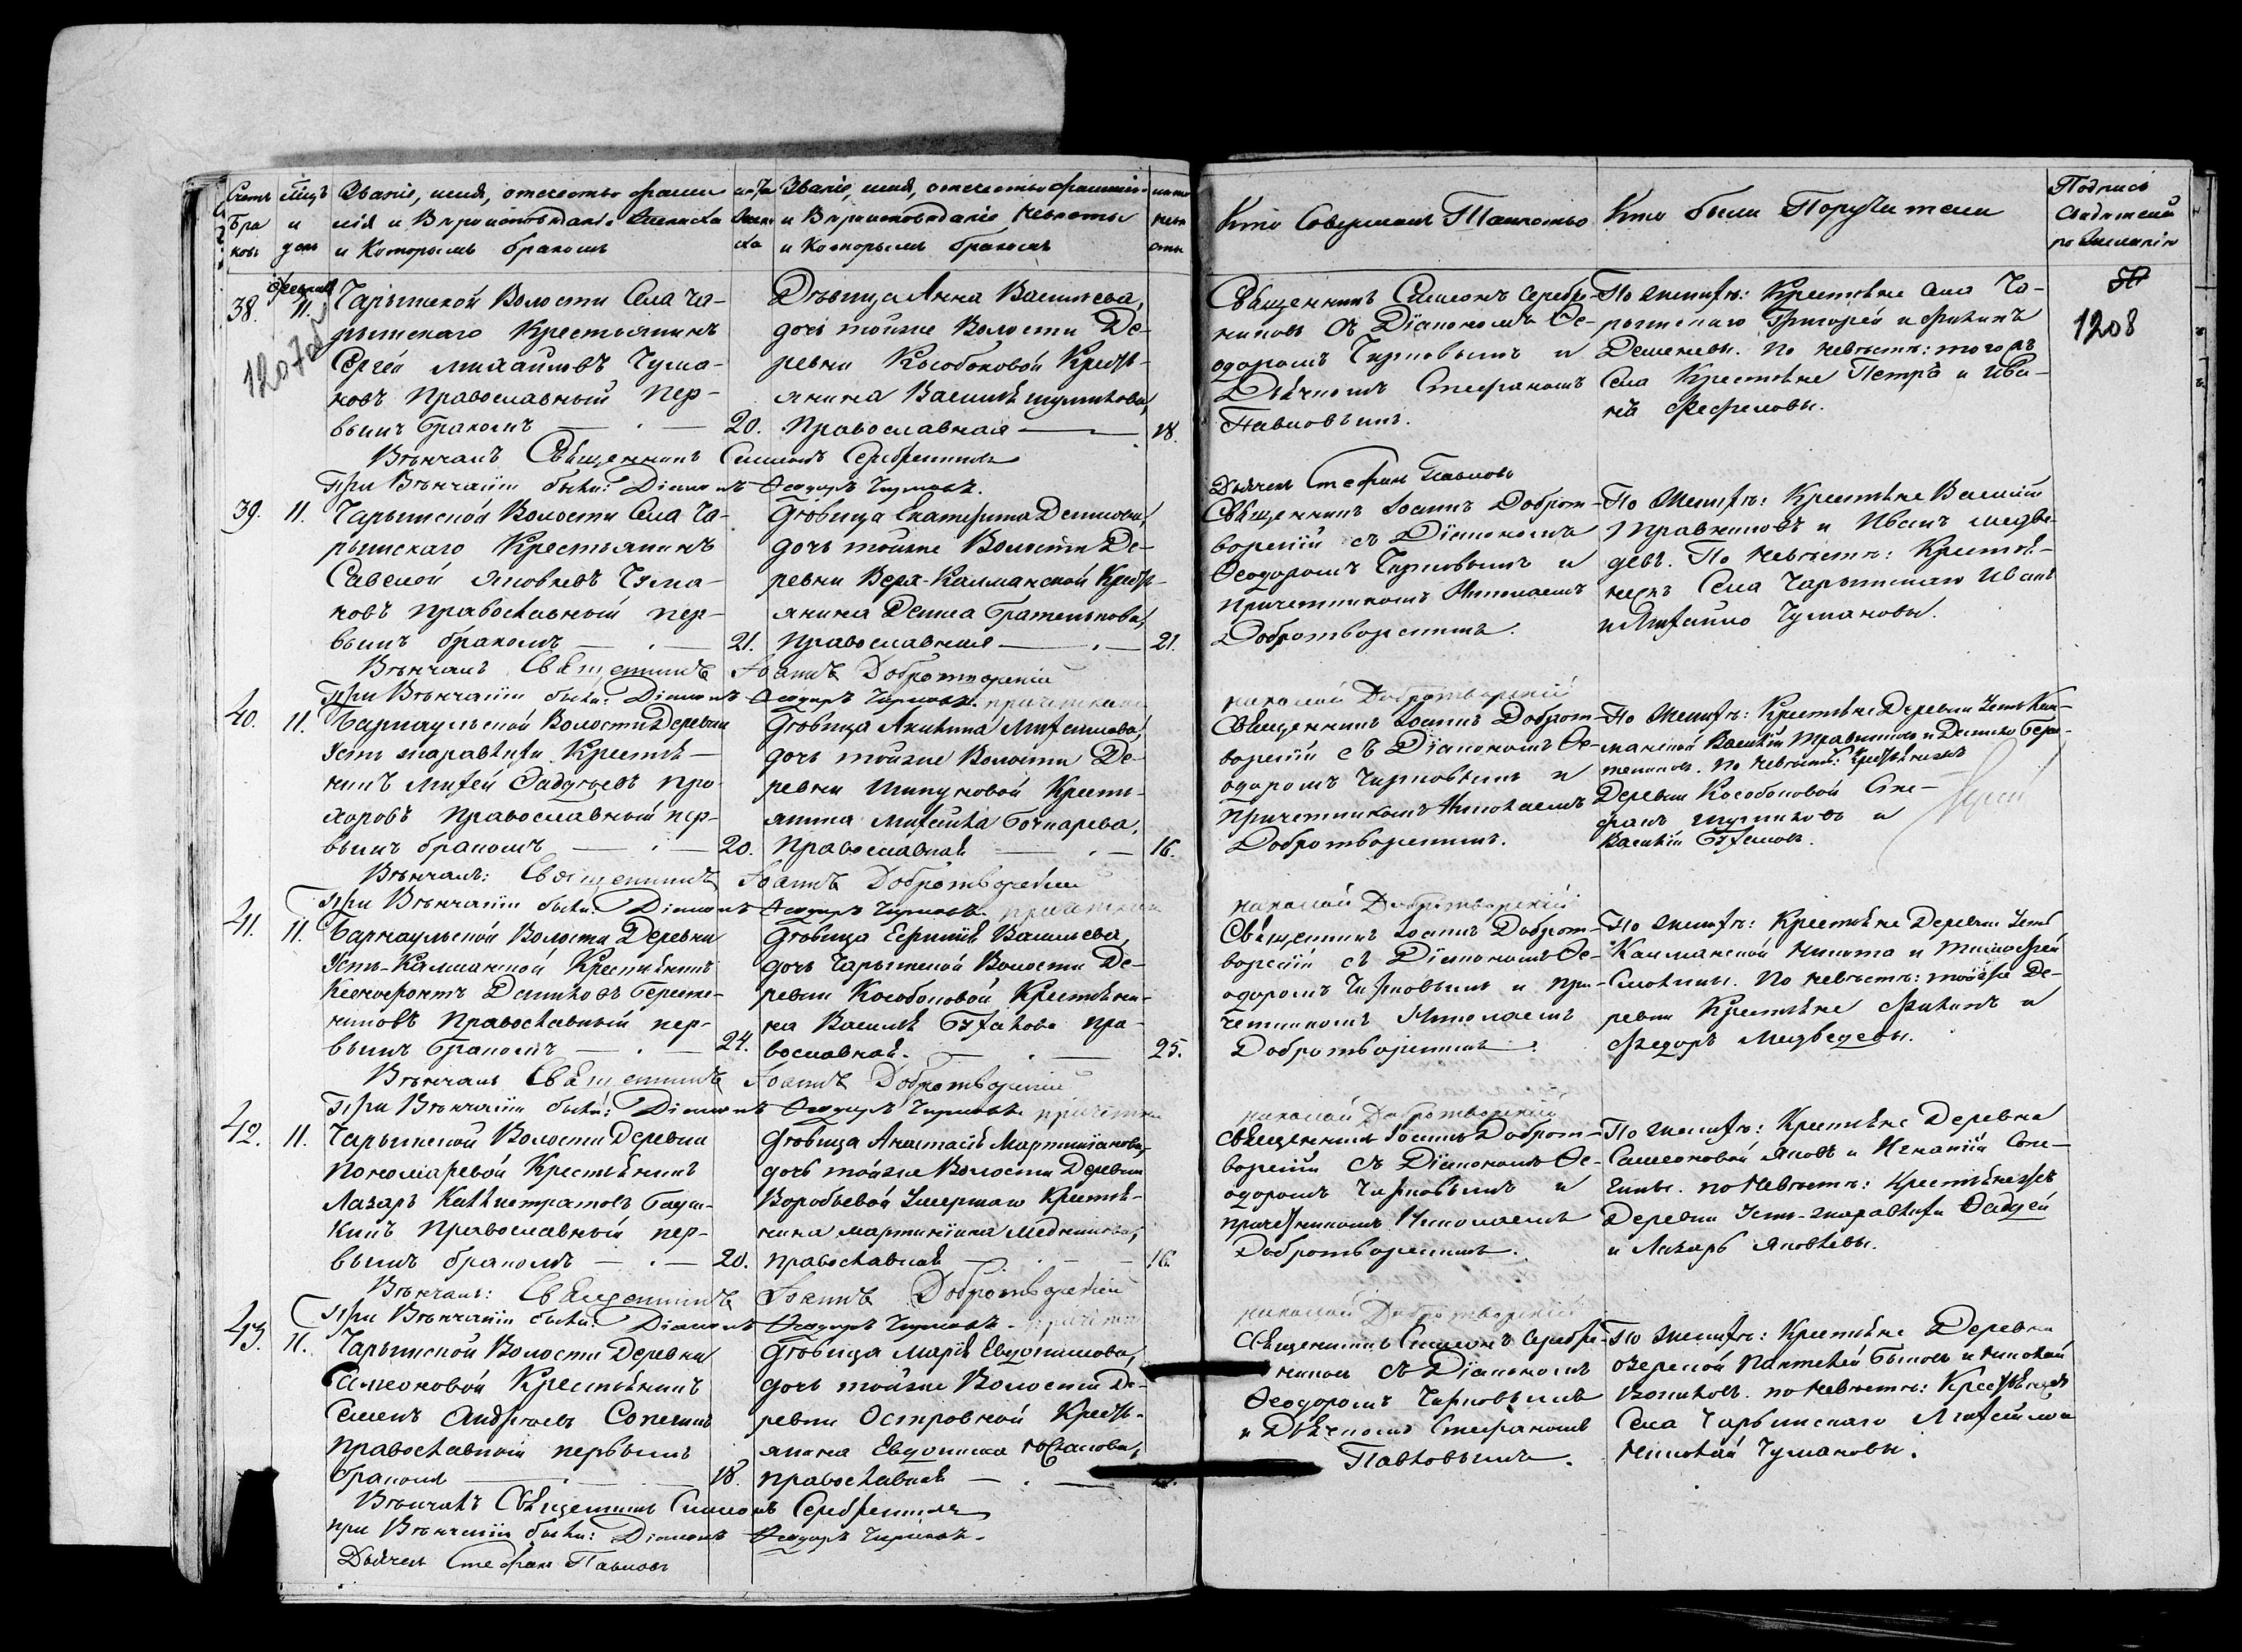 Счетъ Бра ковъ
Мцъ и день
Званіе, имя, отечество фами
лія и Вѣроисповѣданіе Жениха
и Которымъ бракомъ
Лѣта Жени ха
Званіе, имя, отечество фамилію
и Вѣроисповѣданіе Невѣсты
и Которымъ бракомъ
Кто Совершалъ Таинство
Кто были Поручители
Подпись
Свидѣтелей
по Желанію
1208
38.
11.
Чарышской Волости Села Ча-
рышскаго Крестьянинъ
Сергей Михаиловъ Чума-
ковъ Православный пер-
вымъ бракомъ
20.
Дѣвица Анна Васильева,
дочь тойже Волости Де-
ревни Кособоковой Кресть-
янина Василья
Православная
18.
Священникъ Симеонъ Серебре-
никовъ съ Діакономъ Ѳе-
одоромъ Чирковымъ и
Дьячкомъ Стефаномъ
Павловымъ.
По Женихѣ: Крестьяне села Ча-
рышскаго Григорей и Филипъ
По невѣстѣ: того жъ
Села Крестьяне Петръ и Ива-
нъ Фефеловы.
Вѣнчалъ Священникъ Симеонъ Серебренниковъ
При Вѣнчаніи были: Діаконъ Ѳеодоръ Чирковъ.
Дьячекъ Стефанъ Павловъ
39.
11.
Чарышской Волости Села Ча-
рышскаго Крестьянинъ
Савелей Яковлевъ Чума-
ковъ православный пер-
вымъ бракомъ
21.
Дѣвица Екатерина Денисова,
дочь тойже Волости Де-
ревни Верх-Калманской Кресть-
янина Дениса Братенькова,
православная
21.
Священникъ Іоаннъ Доброт-
ворскій съ Діакономъ
Ѳеодоромъ Чирковымъ и
причетникомъ Николаемъ
Добротворскимъ.
По Женихѣ: Крестьяне Василій
Травниковъ и Иванъ Медве-
девъ. По невѣстѣ: Крестья-
не Села Чарышскаго Иванъ
и Михайло Чумаковы.
Вѣнчалъ Священникъ Іоаннъ Добротворскій
При Вѣнчаніи были: Діаконъ Ѳеодоръ Чирковъ. причетникъ
николай Добротворскій
40.
11.
Барнаульской Волости Деревни
Усть Журавлихи Крестья-
нинъ Михей Ѳадѣевъ Про-
хоровъ Православный пер-
вымъ бракомъ
20.
Дѣвица Акилина Михеилова,
дочь тойже Волости Де-
ревни Шипуновой Кресть-
янина Михеила Бочкарева,
Православная
16.
Священникъ Іоаннъ Доброт-
ворскій съ Діакономъ Ѳе-
одоромъ Чирковымъ и
причетникомъ Николаемъ
Добротворскимъ.
По Женихѣ: Крестьяне Деревни Усть Кал-
манской Василій Травников и Данило Бере-
женников. По невѣстѣ: Крестьяне
Деревни Кособоковой Сте-
фанъ и
Василій
Вѣнчалъ: Священникъ Іоаннъ Добротворскій
При Вѣнчаніи были: Діаконъ Ѳеодоръ Чирковъ. причетникъ
николай Добротворскій
41.
11.
Барнаульской Волости Деревни
Усть-Калманской Крестьянинъ
Ксенофонтъ Даниловъ Береже-
никовъ Православный пер-
вымъ бракомъ
24.
Дѣвица Евгенія Васильева,
дочь Чарышской Волости Де-
ревни Кособоковой Крестьяни-
на Василья пра-
вославная.
25.
Священникъ Іоаннъ Доброт-
ворскій съ Діакономъ Ѳе-
одоромъ Чирковымъ и при-
четникомъ Николаемъ
Добротворскимъ.
По Женихѣ: Крестьяне Деревни Усть
Калманской Никита и Тимофей
По невѣстѣ: тойже Де-
ревни Крестьяне Филипъ и
Федоръ Медведевы.
Вѣнчалъ Священникъ Іоаннъ Добротворскій
При Вѣнчаніи были: Діаконъ Ѳеодоръ Чирковъ причетникъ
николай Добротворскій
42.
11.
Чарышской Волости Деревни
Пономаревой Крестьянинъ
Лазарь Каллистратовъ
православный пер-
вымъ бракомъ
20.
Дѣвица Анастасія Мартиніанова,
дочь тойже Волости Деревни
Воробьевой Умершаго Крестья-
нина Мартиніана Медникова,
православная
16.
Священникъ Іоаннъ Доброт-
ворскій съ Діакономъ Ѳе-
одоромъ Чирковымъ и
причетникомъ Николаемъ
Добротворскимъ.
По Женихѣ: Крестьяне Деревни
Самсоновой Яковъ и Игнатій Сопе-
гины. по Невѣстѣ: Крестьяне
Деревни Усть-журавлихи Ѳадѣй
и Лазарь Яковлевы.
Вѣнчалъ: Священникъ Іоаннъ Добротворскій
При Вѣнчаніи были: Діаконъ Ѳеодоръ Чирковъ. причетникъ
николай Добротворскій
43.
11.
Чарышской Волости Деревни
Самсоновой Крестьянинъ
Семенъ Андреевъ Сопегинъ
православный первымъ
бракомъ
18.
Дѣвица Марія Евдокимова,
дочь тойже Волости Де-
ревни Островной Кресть-
янина Евдокима
православная
Священникъ Симеонъ Серебре-
никовъ съ Діакономъ
Ѳеодоромъ Чирковымъ
и Дьячкомъ Стефаномъ
Павловымъ.
По Женихѣ: Крестьяне Деревни
озерной Пантелей Быковъ и Николай
Воликовъ. по Невѣстѣ: Крестьяне
Села Чарышскаго Михайло и
Николай Чумаковы.
Вѣнчалъ Священникъ Симеонъ Серебренниковъ
при Вѣнчаніи были: Діаконъ Ѳеодоръ Чирковъ.
Дьячекъ Стефанъ Павловъ